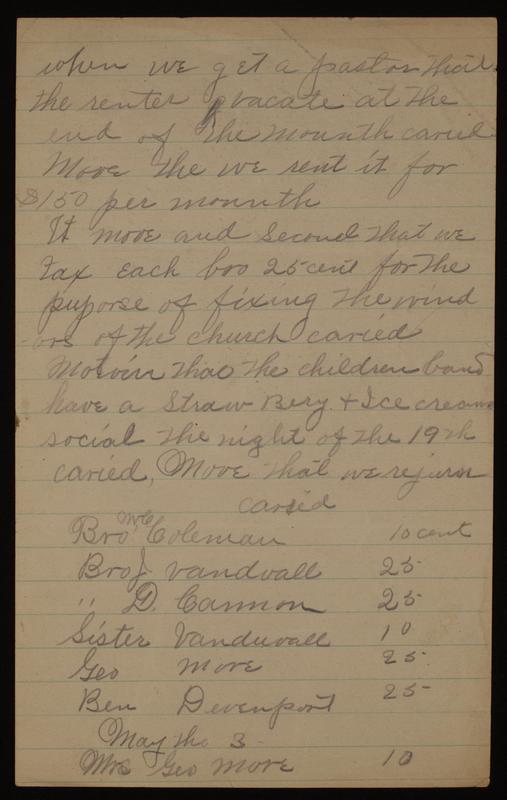 when we get a pastor that
the renter vacate at the
end of the mounth caried
Move the we rent it for
$150 per mounth
It move and Second that we
tax each boo 25 cent for the
puporse of fixing the wind
ors of the church caried
Motvin that the children band
have a Straw Bery + Ice cream
social the night of the 19th
caried, Move that we rejurn
caried
Bro Mc Coleman 10 cent
Bro J. Vandvall 25
" D. Cannon 25
Sister Vanduvall 10
Geo More 25
Ben Devenport 25
May the 3
Mrs Geo More 10